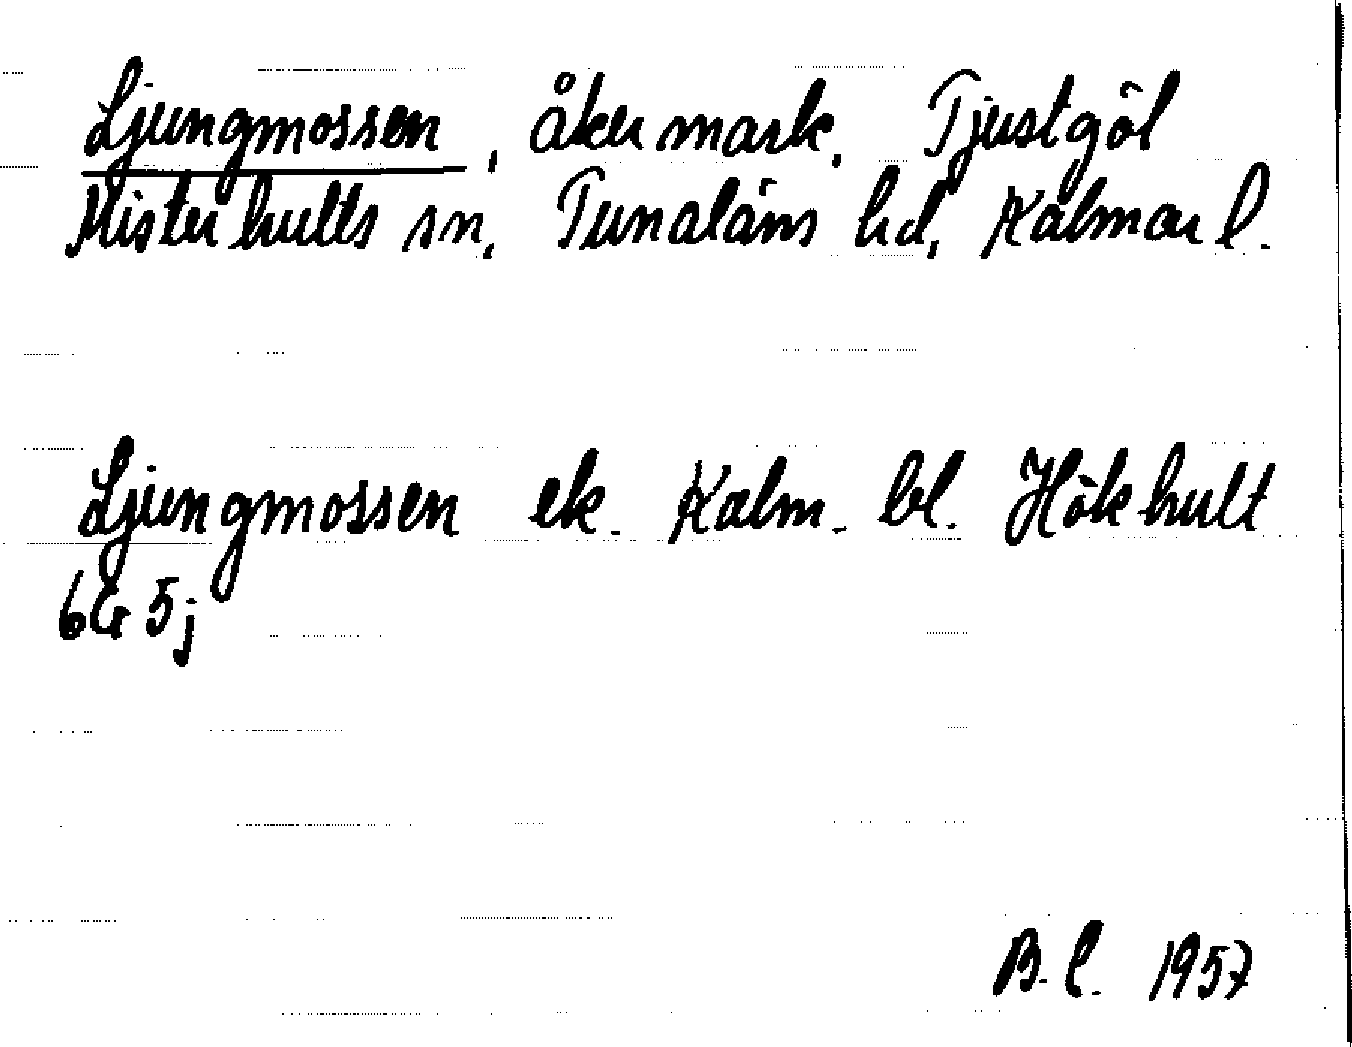 Ljungmossen, åkermark, Tjustgöl
Misterhults sn, Tunaläns hd, Kalmar l.
Ljungmossen ek. Kalm. bl. Hökhult
6G 5j
B.l. 1957